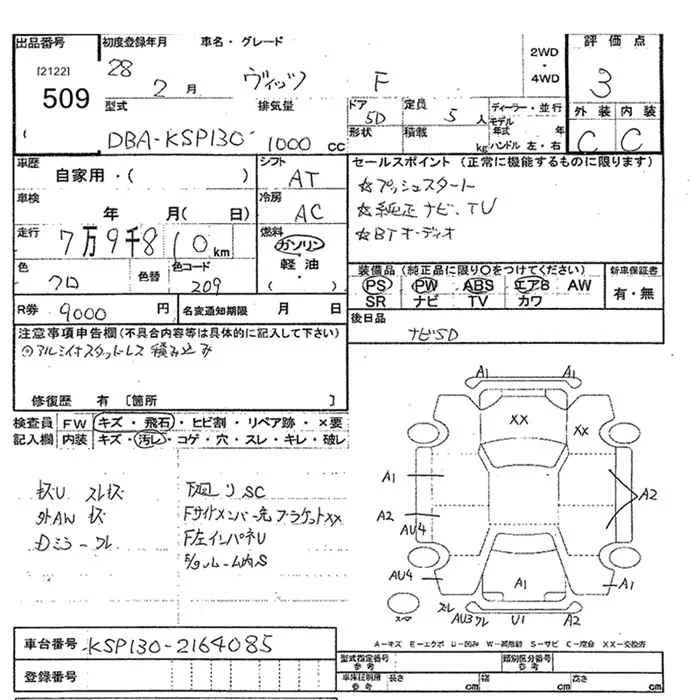 出品番号 初度登録年月 車名・グレード 2WD・4WD 評価点
[2122] 509 28 2月 ヴィッツ F 3
型式 排気量 ドア 5D 定員 5人 ディーラー・並行 外装 内装
DBA-KSP130 1000cc 形状 積載 kg モデル年式 年 ハンドル 左・右 C C
車歴 自家用・( ) シフト AT セールスポイント (正常に機能するものに限ります)
車検 年 月( 日) 冷房 AC ☆プッシュスタート
☆純正ナビ、TV
走行 7万9千810km 燃料 ガソリン ☆BTオーディオ
軽油・( )
色 クロ 色替 色コード 209 装備品 (純正品に限り○をつけてください) 新車保証書
PS PW ABS エアB AW 有・無
R券 9000円 名変通知期限 月 日 SR ナビ TV カワ
注意事項申告欄(不具合内容等は具体的に記入して下さい) 後日品
アルミ付スタッドレス積み込み ナビSD
修復歴 有 [箇所 ]
検査員 FW キズ・飛石・ヒビ割・リペア跡・×要
記入欄 内装 キズ・汚レ・コゲ・穴・スレ・キレ・破レ
キズU スレキズ 下廻りSC
外AW キズ Fサイドメンバー先ブラケットXX
Dミラースレ F左インパネU
ルーム内S
A1 A1
XX XX
A1 A2
A2
AU4
AU4 A1 A1
スレ AU3 スレ U1 A2
スペア
A-キズ E-エクボ U-凹み W-補修跡 S-サビ C-腐食 XX-交換済
車台番号 KSP130-2164085
登録番号
型式指定番号 参考 類別区分番号 参考
車庫証明用 参考 長さ cm 幅 cm 高さ cm